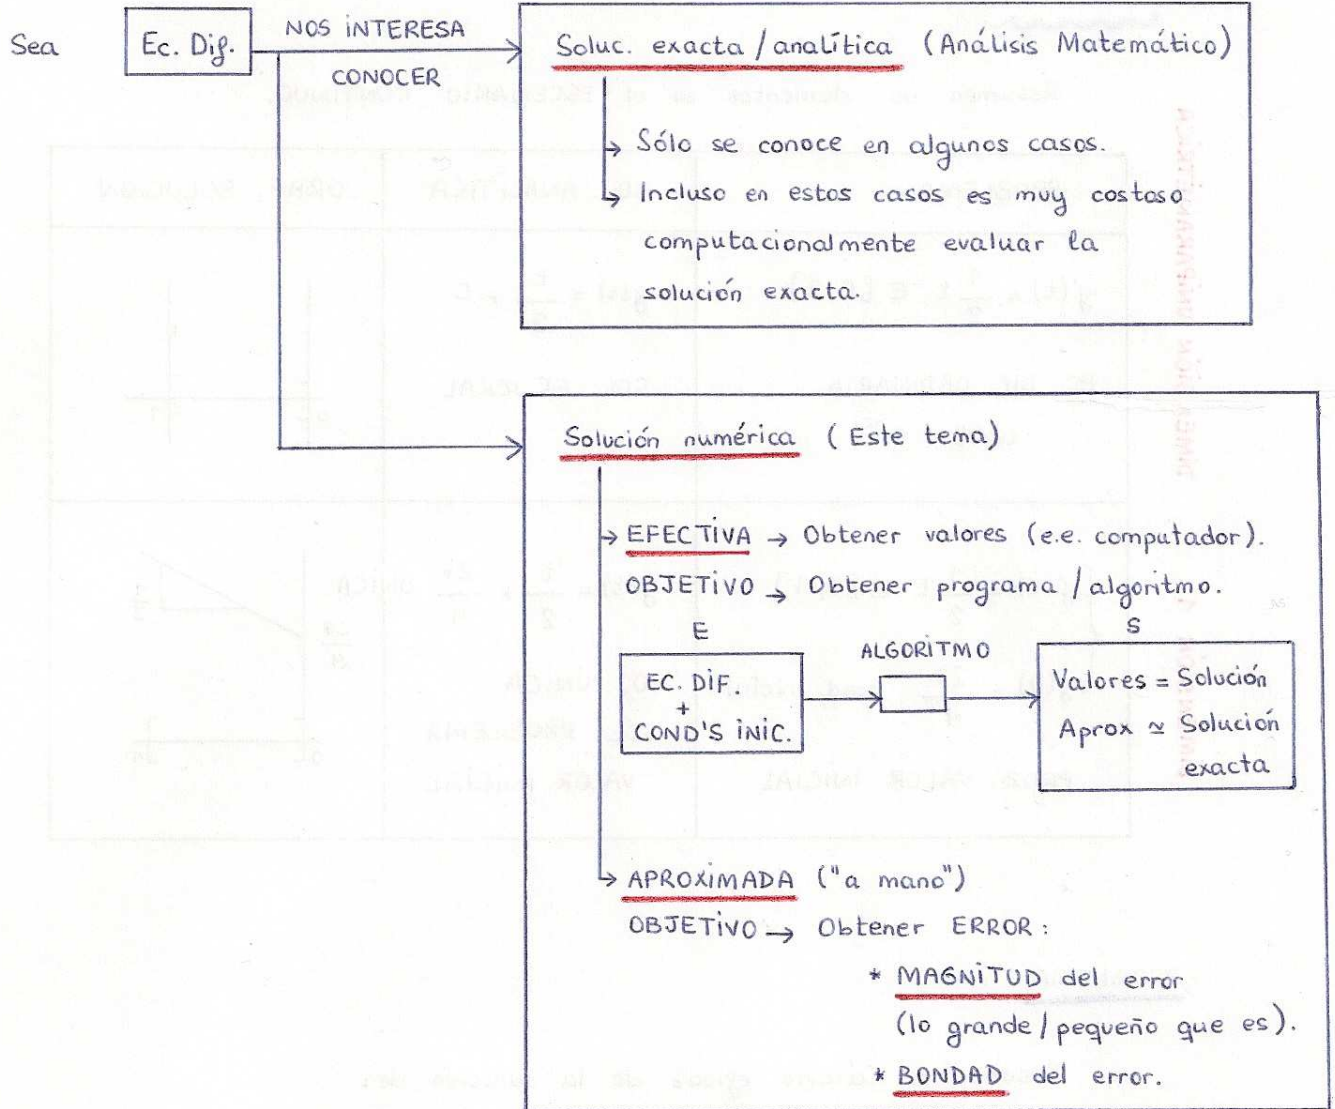 Sea Ec. Dif. NOS INTERESA CONOCER
Soluc. exacta / analítica (Análisis Matemático)
→ Sólo se conoce en algunos casos.
→ Incluso en estos casos es muy costoso
computacionalmente evaluar la
solución exacta.
Solución numérica (Este tema)
→ EFECTIVA → Obtener valores (e.e. computador).
OBJETIVO → Obtener programa / algoritmo.
E ALGORITMO S
EC. DIF.
+
COND'S INIC.
Valores = Solución
Aprox ≃ Solución
exacta
→ APROXIMADA ("a mano")
OBJETIVO → Obtener ERROR:
* MAGNITUD del error
(lo grande / pequeño que es).
* BONDAD del error.